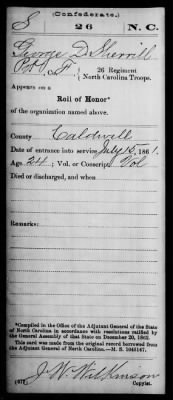 (Confederate.)
S 26 N. C.
George D. Sherrill
Pvt, Co. F, 26 Regiment
North Carolina Troops.
Appears on a
Roll of Honor*
of the organization named above.
County Caldwell
Date of entrance into service July 15, 1861.
Age 24; Vol. or Conscript Vol
Died or discharged, and when
Remarks:
*Compiled in the Office of the Adjutant General of the State of North Carolina in accordance with resolutions ratified by the General Assembly of that State on December 20, 1862.
This card was made from the original record borrowed from the Adjutant General of North Carolina.—M. S. 1045167.
J. W. Wilkinson
Copyist.